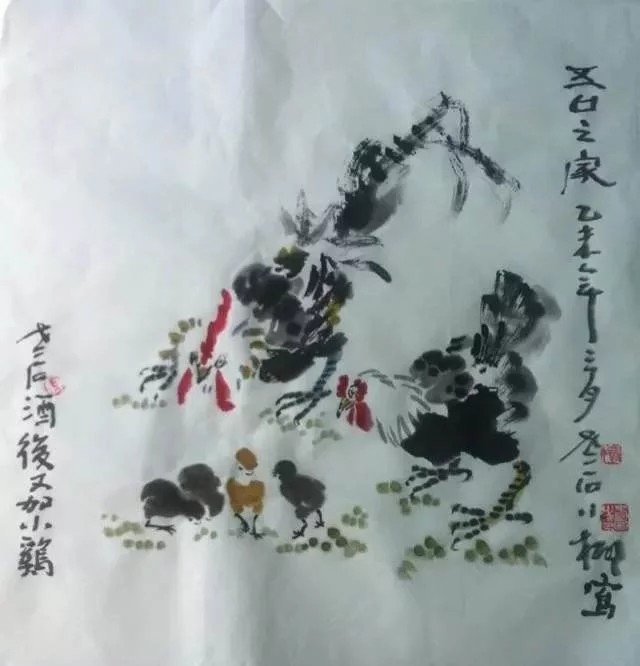 五口之家 乙未年三月 老石小柳寫
老石酒後又加小鷄